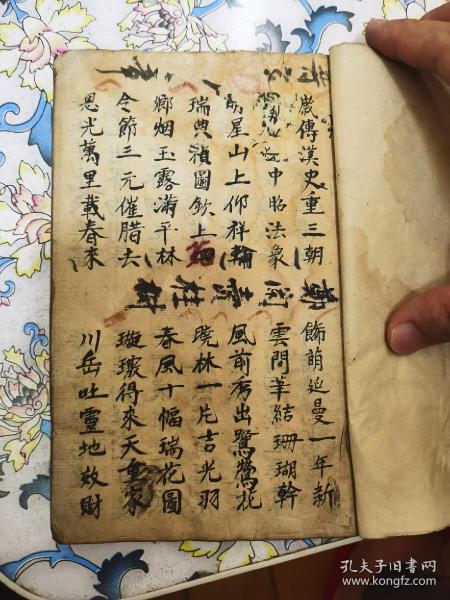 歲傳漢史重三朝
中昭法象
星山上仰祥輪
瑞典禎圖欽上
鄉烟玉露滿平林
令節三元催腊去
恩光萬里載春來
飾萌延曼一年新
雲間華結珊瑚幹
風前秀出鷺鶯花
曉林一片吉光羽
春風十幅瑞花圖
璇瓌得來天重家
川岳吐靈地效財
孔夫子旧书网
www.kongfz.com